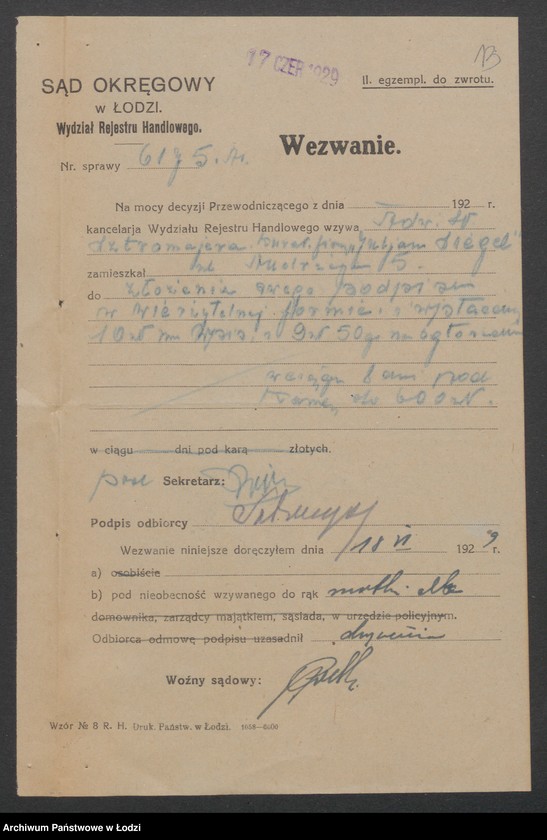 17 CZER 1929
13
SĄD OKRĘGOWY
w ŁODZI.
Wydział Rejestru Handlowego.
II. egzempl. do zwrotu.
Wezwanie.
Nr. sprawy
Na mocy decyzji Przewodniczącego z dnia 192 r.
kancelarja Wydziału Rejestru Handlowego wzywa Adw. W
Sztromajera firmy Siegel"
zamieszkał ul Andrzeja 5.
do złożenia swego podpisu
w wierzytelnej formie i
10 zł na wpis i 9 zł 50 gr na ogłoszenie
w ciągu 8 dni pod
karą do 600 zł.
w ciągu dni pod karą złotych.
Sekretarz:
Podpis odbiorcy
Wezwanie niniejsze doręczyłem dnia 18 VI 1929 r.
a) osobiście
b) pod nieobecność wzywanego do rąk
domownika, zarządcy majątkiem, sąsiada, w urzędzie policyjnym.
Odbiorca odmowę podpisu uzasadnił
Woźny sądowy:
Wzór № 8 R. H. Druk. Państw. w Łodzi.
Archiwum Państwowe w Łodzi